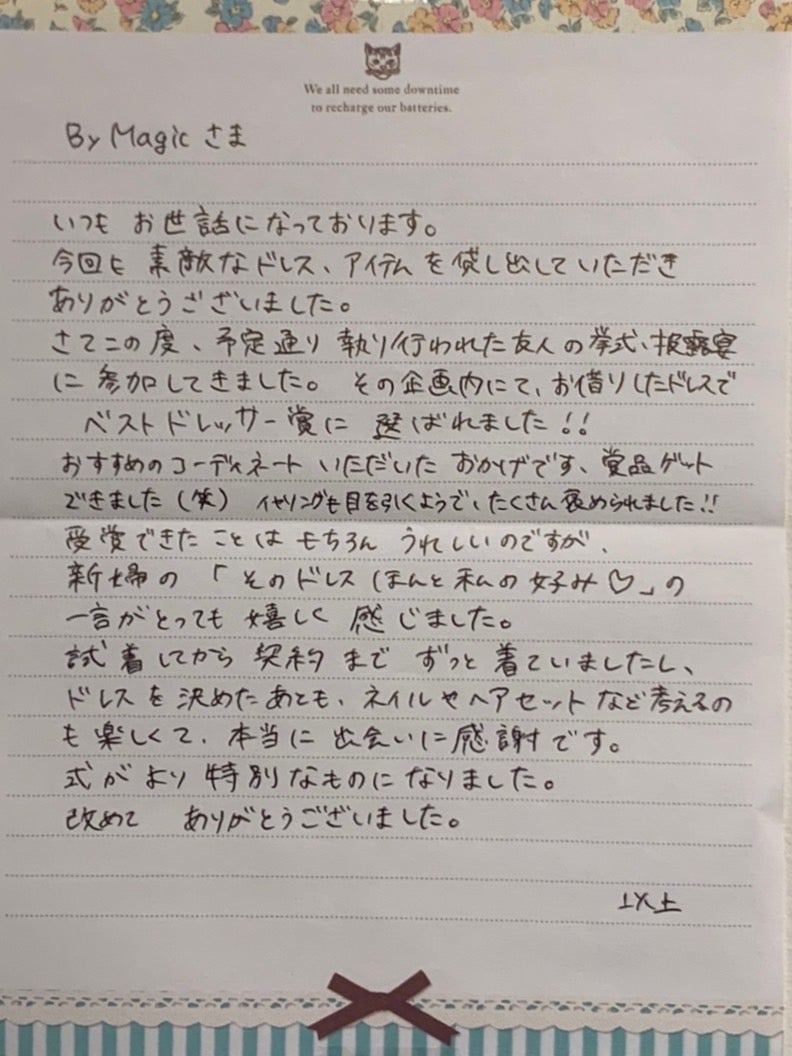 We all need some downtime
to recharge our batteries.
By Magic さま
いつも お世話になっております。
今回も 素敵なドレス、アイテムを貸し出していただき
ありがとうございました。
さてこの度、予定通り 執り行われた友人の挙式、披露宴
に参加してきました。 その企画内にて、お借りしたドレスで
ベストドレッサー賞に 選ばれました!!
おすすめのコーディネート いただいた おかげです、賞品ゲット
できました(笑) イヤリングも目を引くようで、たくさん褒められました!!
受賞できたことは もちろん うれしいのですが、
新婦の 「そのドレス ほんと 私の好み♡」の
一言がとっても 嬉しく 感じました。
試着してから 契約まで ずっと 着ていましたし、
ドレスを 決めたあとも、ネイルやヘアセット など考えるの
も楽しくて、本当に 出会いに感謝です。
式がより 特別なものに なりました。
改めて ありがとうございました。
以上